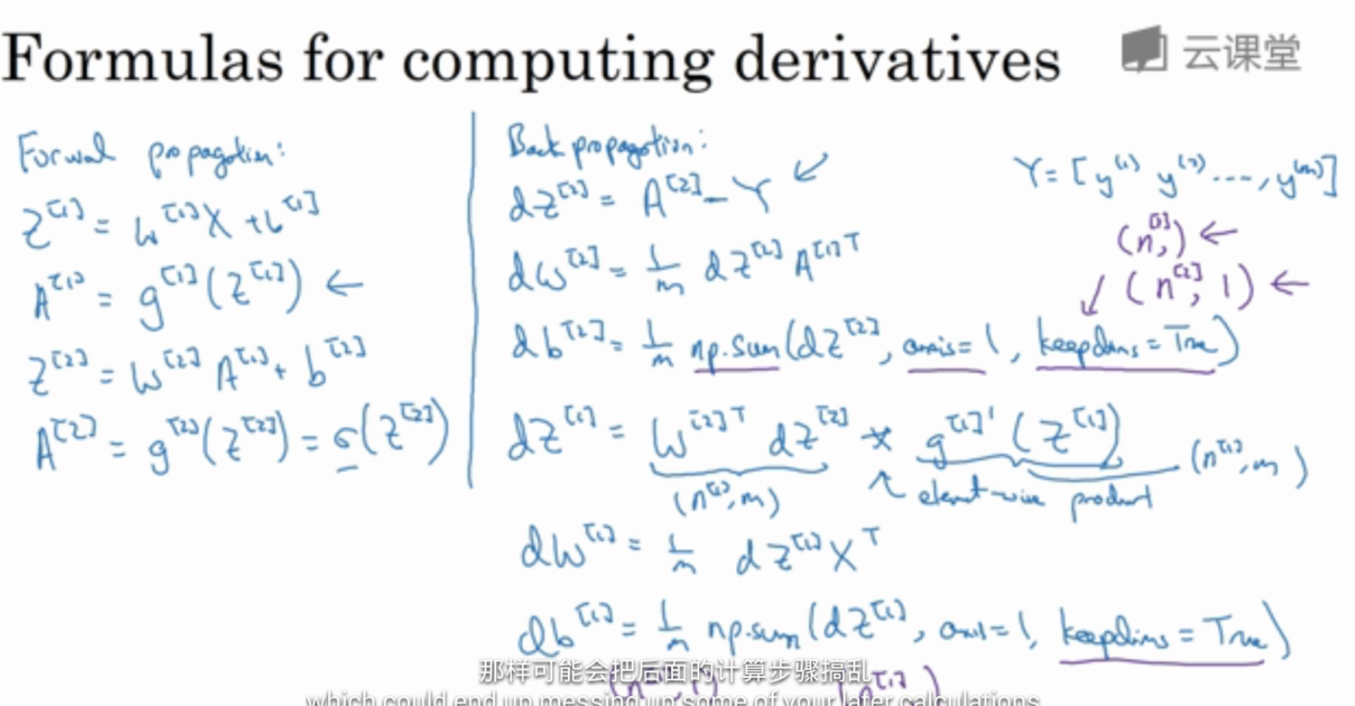 Formulas for computing derivatives
云课堂
Forward propagation:
Z^[1] = W^[1] X + b^[1]
A^[1] = g^[1](Z^[1]) ←
Z^[2] = W^[2] A^[1] + b^[2]
A^[2] = g^[2](Z^[2]) = σ(Z^[2])
Back propagation:
dZ^[2] = A^[2] - Y ↙
Y = [y^(1) y^(2) ..., y^(m)]
dW^[2] = 1/m dZ^[2] A^[1]T
(n^[2],) ←
↓ (n^[2], 1) ←
db^[2] = 1/m np.sum(dZ^[2], axis=1, keepdims=True)
dZ^[1] = W^[2]T dZ^[2] * g^[1]'(Z^[1])
(n^[1], m) ↖ element-wise product (n^[1], m)
dW^[1] = 1/m dZ^[1] X^T
db^[1] = 1/m np.sum(dZ^[1], axis=1, keepdims=True)
那样可能会把后面的计算步骤搞乱
which could end up messing up some of your later calculations